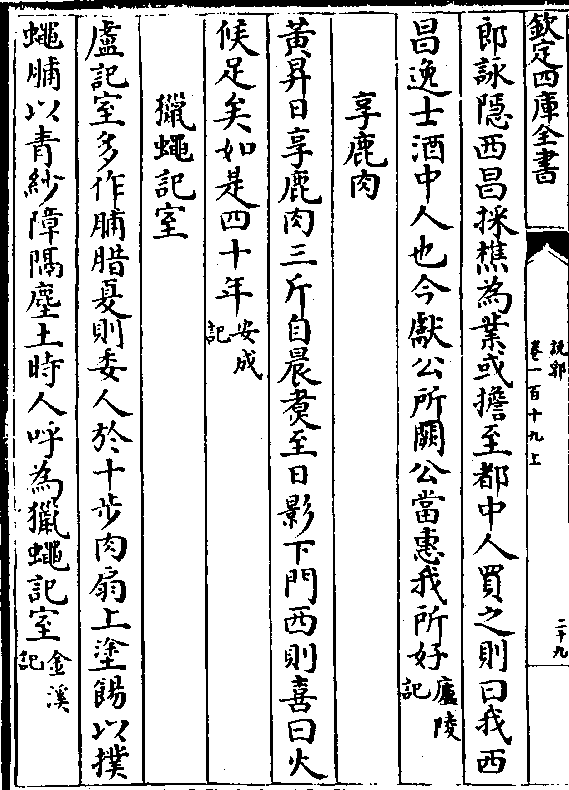 欽定四庫全書
說郛
卷一百十九上
二十九
郎詠隱西昌採樵為業或擔至都中人買之則曰我西
昌逸士酒中人也今獻公所闕公當惠我所好廬陵記
享鹿肉
黄昇日享鹿肉三斤自晨煑至日影下門西則喜曰火
候足矣如是四十年安成記
獵蠅記室
盧記室多作脯腊夏則委人於十步内扇上塗餳以撲
蠅脯以青紗障隔塵土時人呼為獵蠅記室金溪記